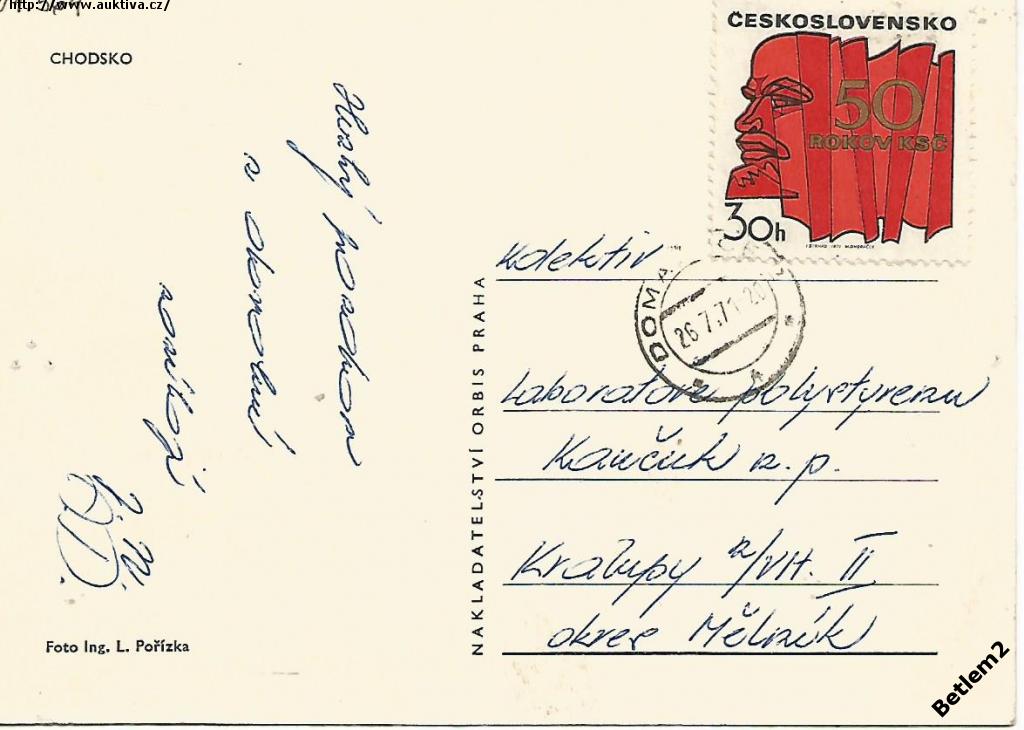 http://www.auktiva.cz/
CHODSKO
Hezký pozdrav
z
zasílají
NAKLADATELSTVÍ ORBIS PRAHA
Foto Ing. L. Pořízka
ČESKOSLOVENSKO
50
ROKOV KSČ
30h
26.7.71
Kolektiv
Laboratoře polystyrenu
Kaučuk n.p.
Kralupy n/Vlt. II
okres Mělník
Betlem2